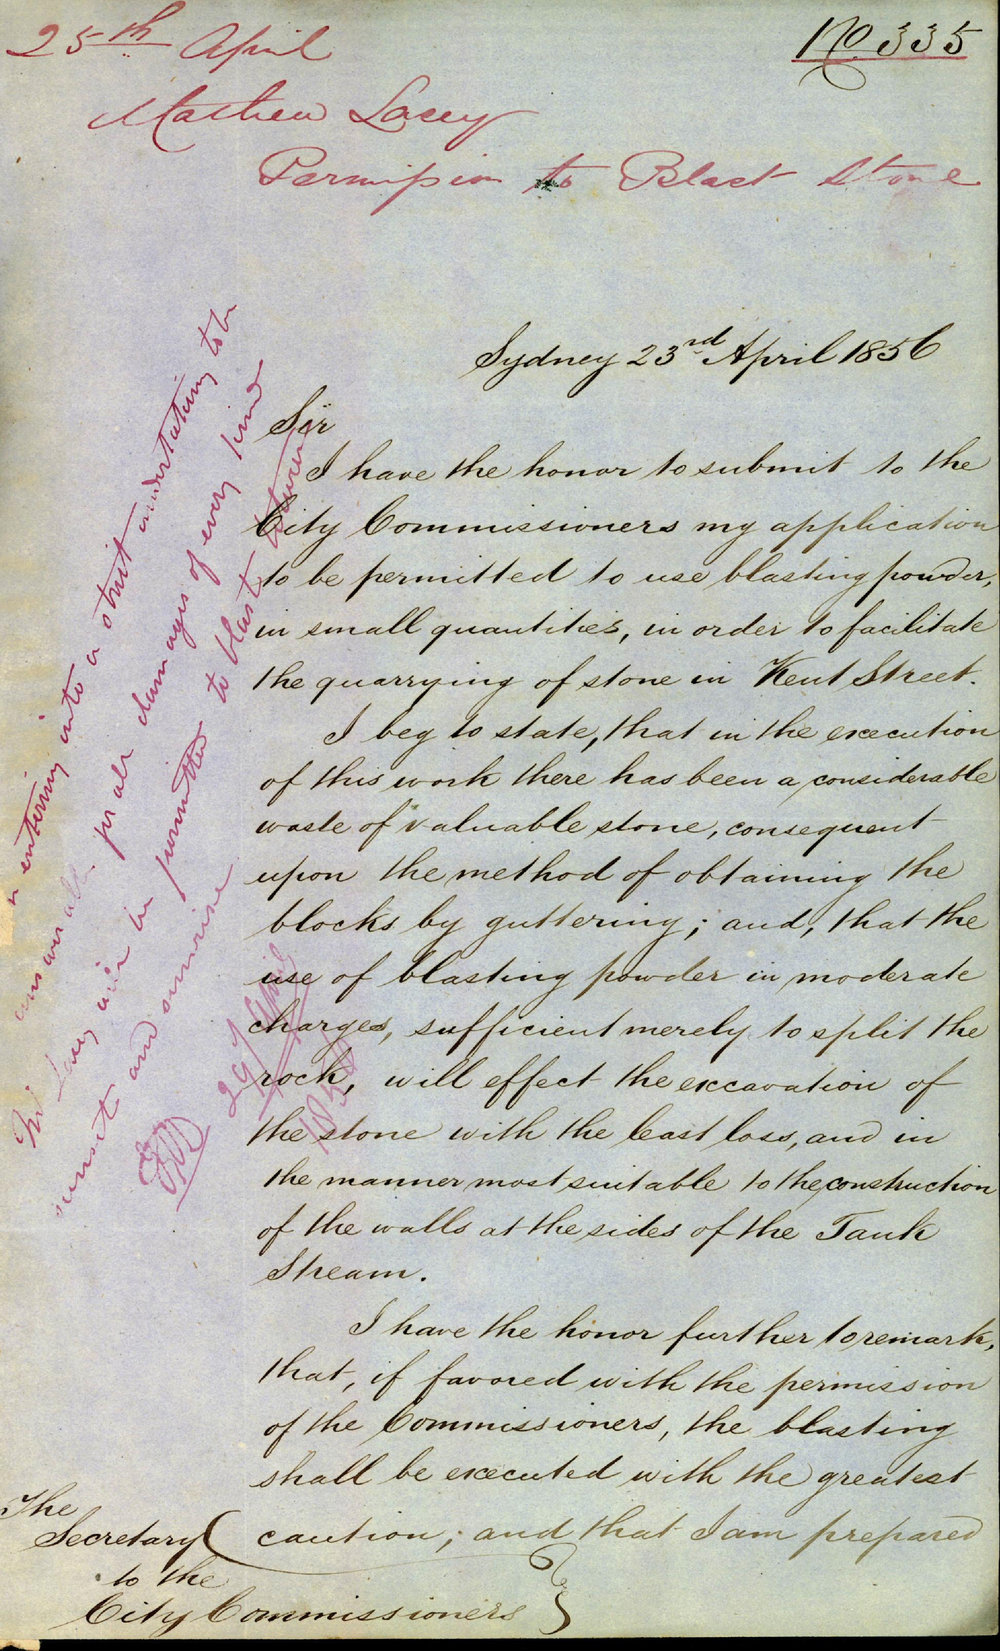 25th April
No 335
Mathew Lacey
Permission to Blast Stone
Sydney 23rd April 1856
Sir
I have the honor to submit to the
City Commissioners my application
to be permitted to use blasting powder,
in small quantities, in order to facilitate
the quarrying of stone in Kent Street.
I beg to state, that in the execution
of this work there has been a considerable
waste of valuable stone, consequent
upon the method of obtaining the
blocks by guttering; and, that the
use of blasting powder in moderate
charges, sufficient merely to split the
rock, will effect the excavation of
the stone with the least loss, and in
the manner most suitable to the construction
of the walls at the sides of the Tank
Stream.
I have the honor further to remark,
that, if favored with the permission
of the Commissioners, the blasting
shall be executed with the greatest
caution; and that I am prepared
The
Secretary
to the
City Commissioners
entering into a strict undertaking to be
answerable for all damages of every kind
Mr Lacey will be permitted to blast between
sunset and sunrise
29 April
1856